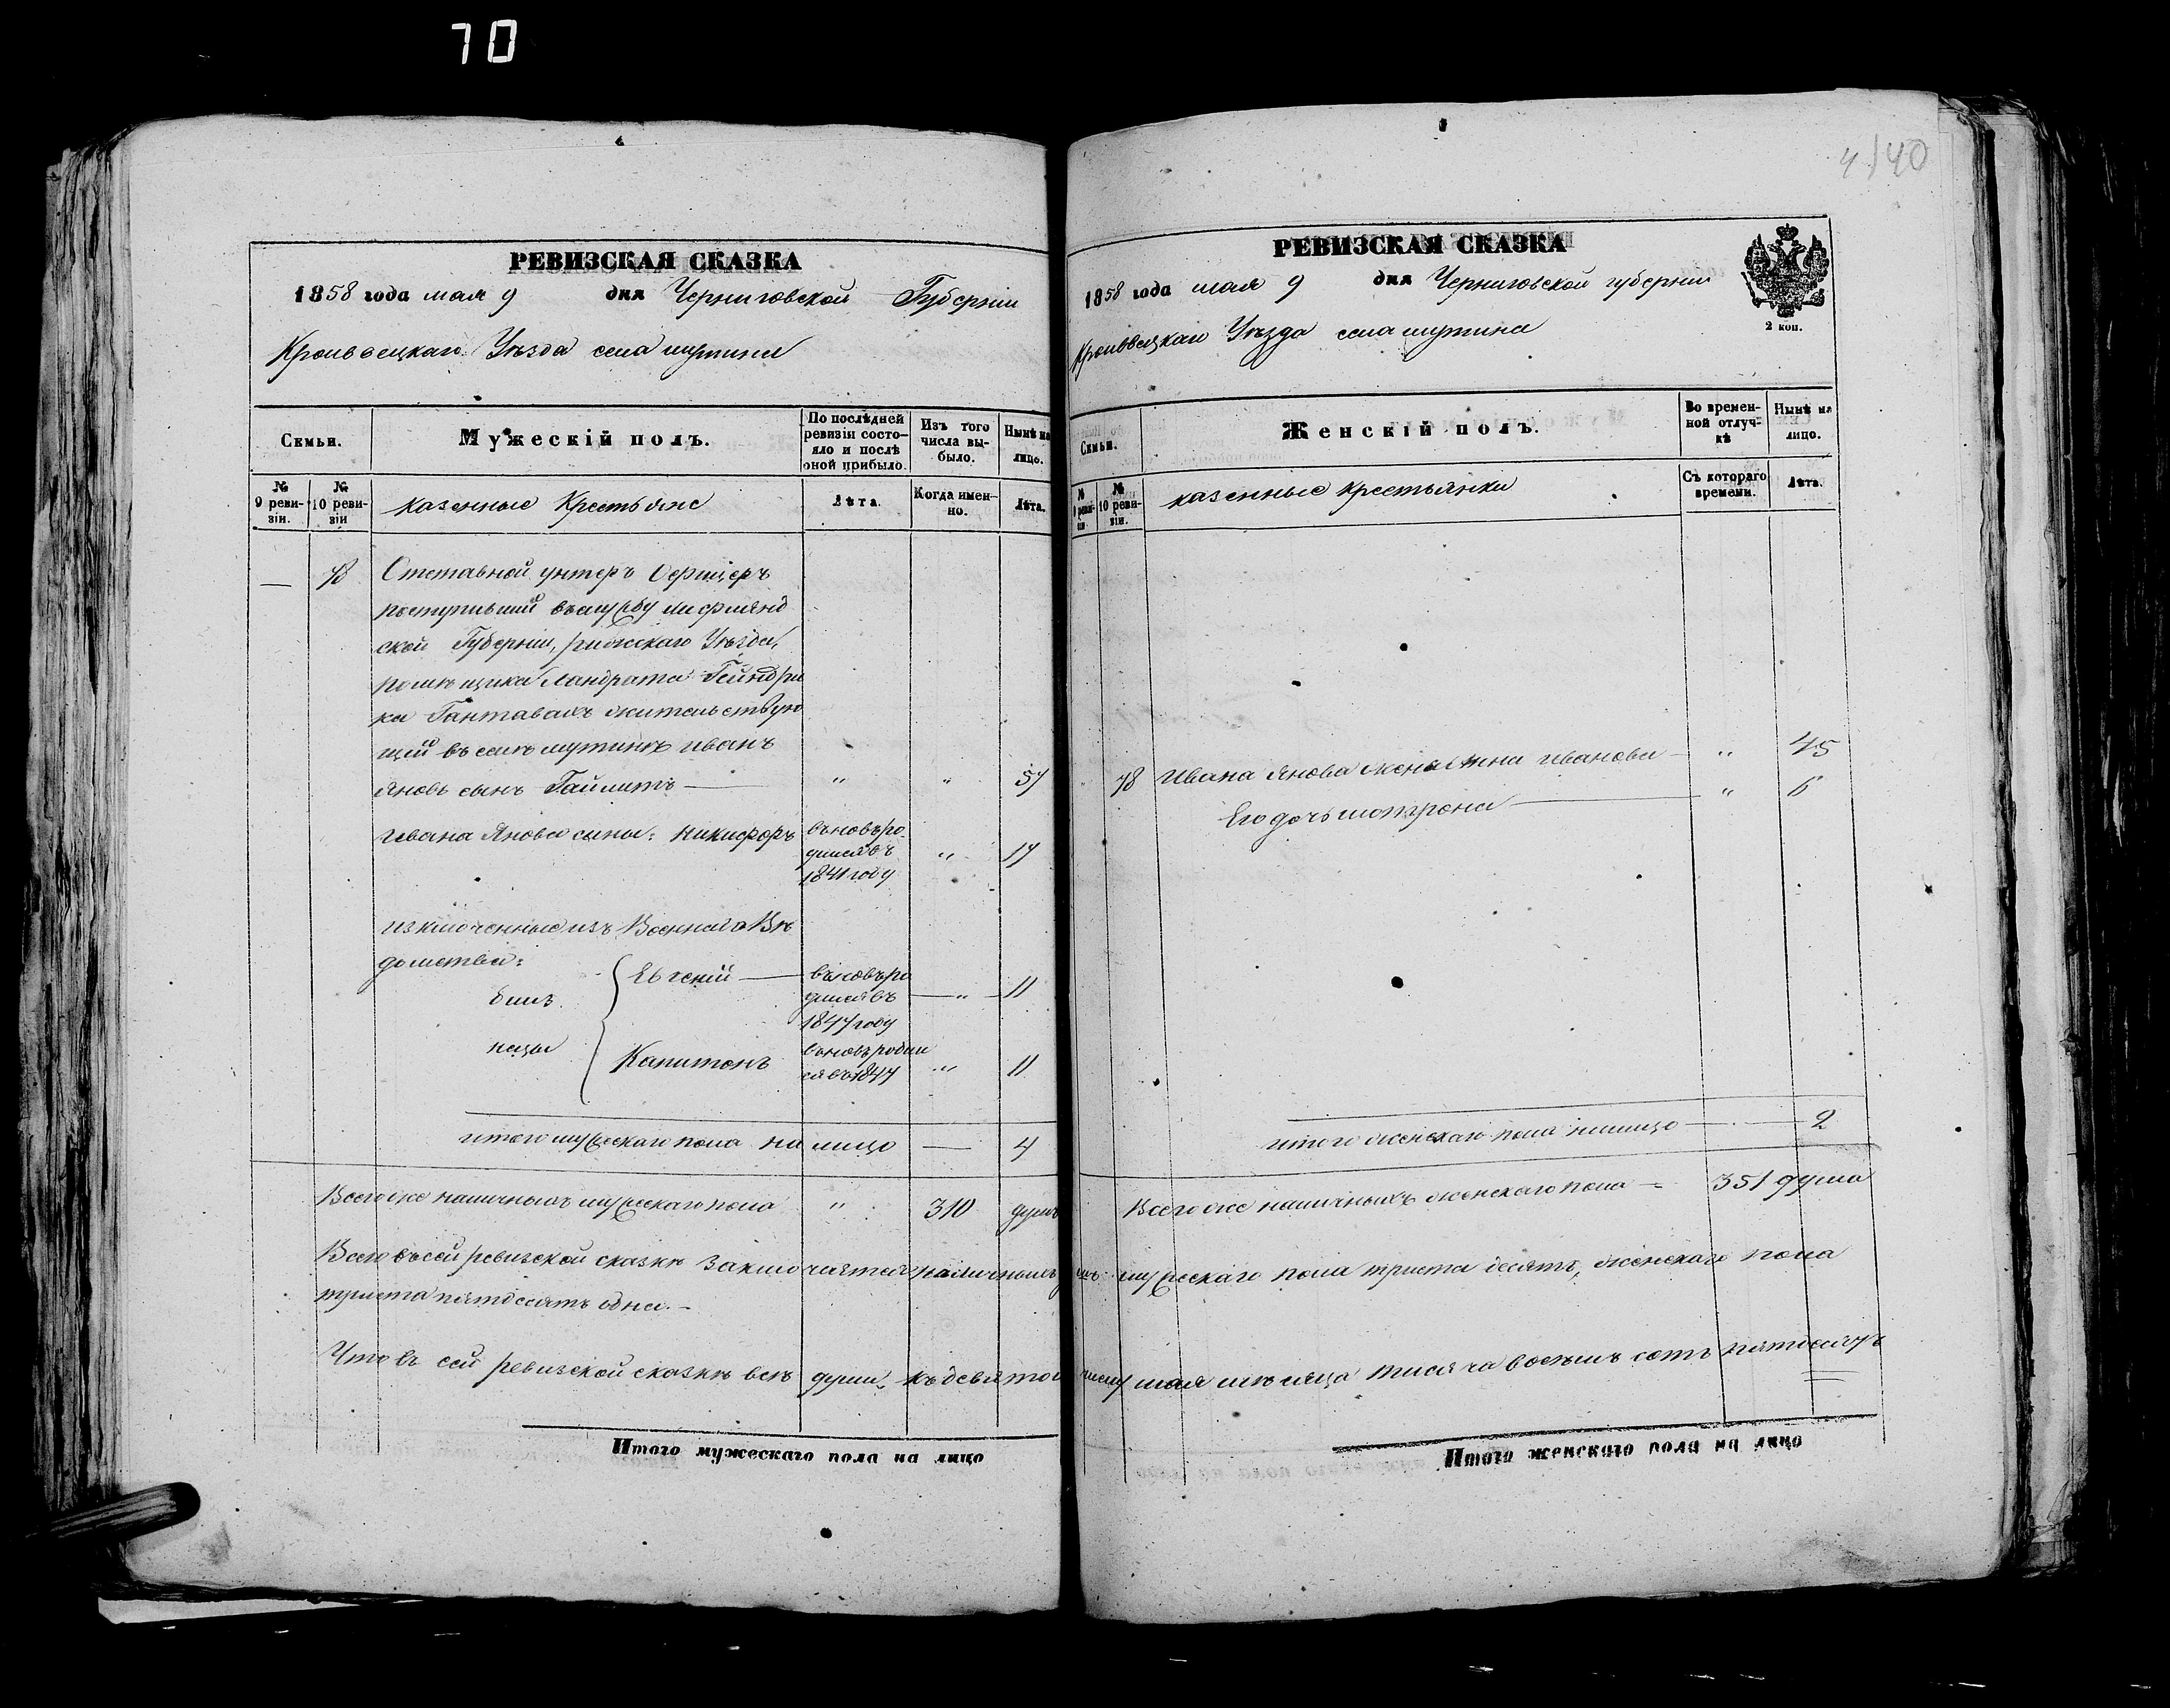 70
4/40
РЕВИЗСКАЯ СКАЗКА
1858 года мая 9 дня Черниговской Губерніи
Кролевецкаго Уѣзда села мутина
Семьи.
Мужескій полъ.
По послѣдней ревизіи состояло и послѣ оной прибыло.
Изъ того числа выбыло.
Нынѣ на лицо.
№ 9 ревизіи.
№ 10 ревизіи
казенные Крестьяне
Лѣта.
Когда именно.
Лѣта.
— 78 Отставной унтеръ Офицеръ
поступившій въ службу лифлянд
ской Губерніи, рижскаго Уѣзда,
помѣщика Ландрата Гейндри
ка жительствую
щій въ селѣ мутинѣ иванъ
Яновъ сынъ Гайлитъ — " " 57
ивана Янова сыны: никифоръ вновь родился въ 1841 году " 17
изключенные изъ Военнаго Вѣ
домства:
близ
нецы
Евгеній — вновь родился въ 1847 году — " — 11
Капитонъ вновь родился въ 1847 " 11
итого мужескаго пола на лицо — 4
Всего же наличныхъ мужескаго пола " 310 душъ
РЕВИЗСКАЯ СКАЗКА
1858 года мая 9 дня Черниговской губерніи
Кролевецкаго Уѣзда села мутина
2 коп.
Семьи.
Женскій полъ.
Во временной отлучкѣ
Нынѣ на лицо.
№ 9 ревизіи
№ 10 ревизіи.
казенные крестьянки
Съ котораго времени.
Лѣта.
78 ивана Янова жена иванова — " 45
Его дочь мотрона — " 6
итого женскаго пола налицо — 2
Всего же наличныхъ женскаго пола — 351 душа
Всего въ сей ревизской сказкѣ заключается наличныхъ мужескаго пола триста десять, женскаго пола
триста пятдесятъ одна. —
Что въ сей ревизской сказкѣ всѣ души, къ девятому числу мая мѣсяца тисяча восемь сотъ пятдесятъ
Итого мужескаго пола на лицо
Итого женскаго пола на лицо